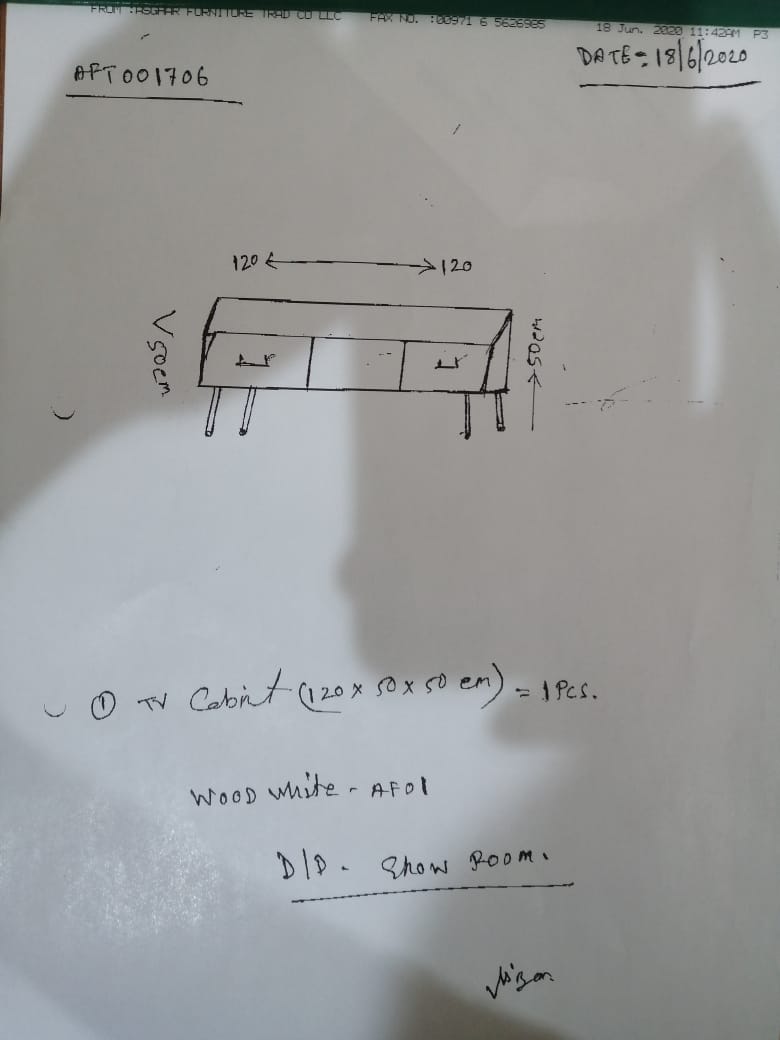 FROM :ASGHAR FURNITURE TRAD CO LLC FAX NO. :00971 6 5626985 18 Jun. 2020 11:42AM P3
AFT001706
DATE = 18/6/2020
120 120
50cm
50cm
① TV Cabint (120 x 50 x 50 cm) = 1 Pcs.
WOOD white - AF01
D/D - Show Room.